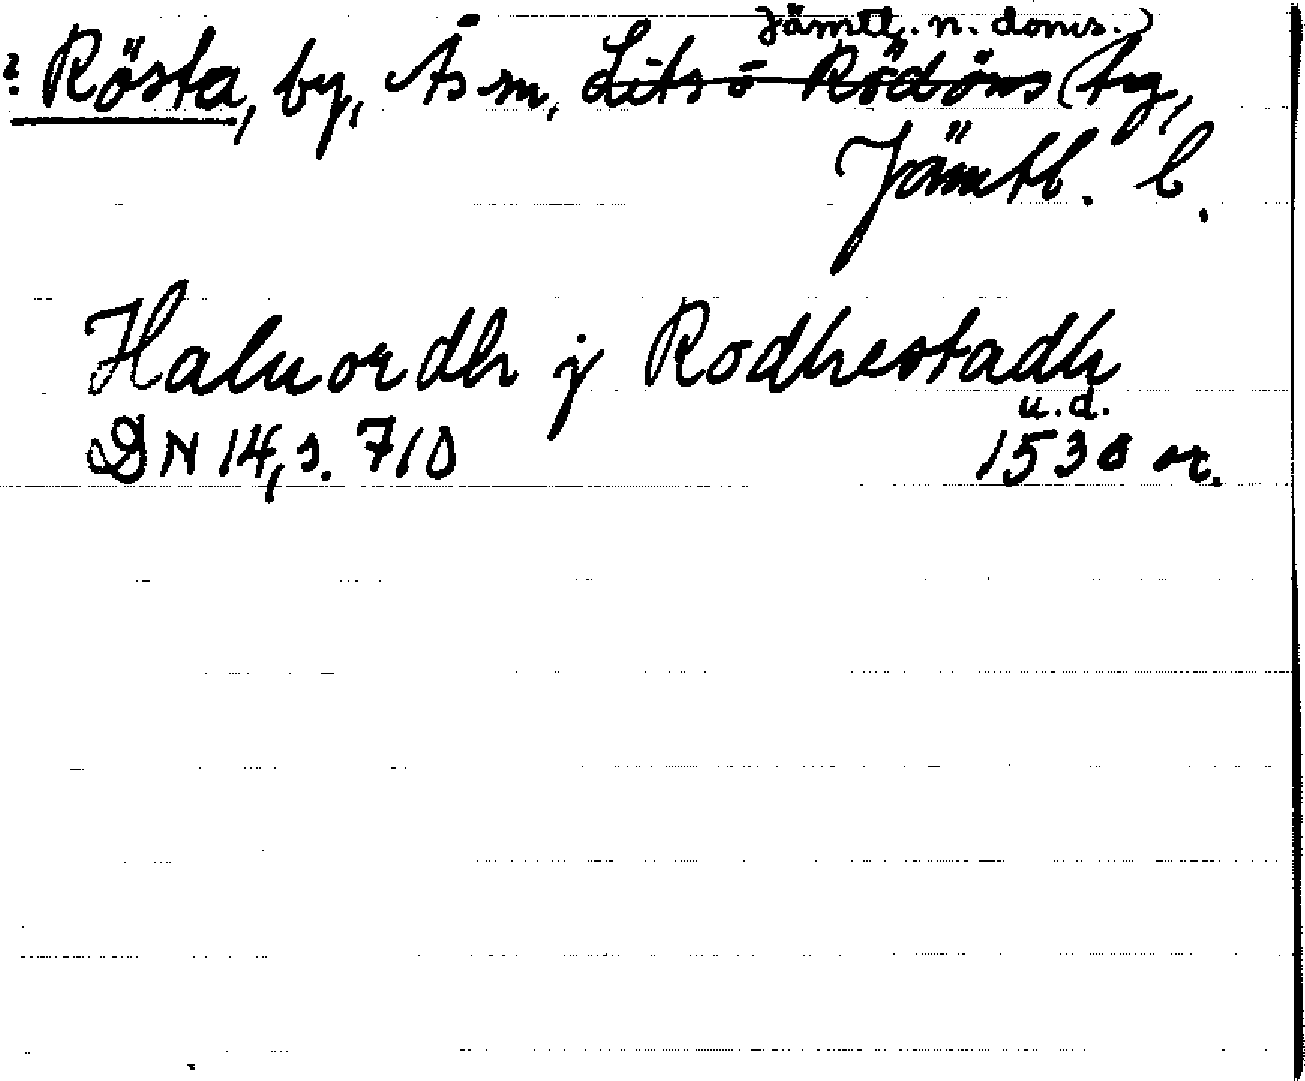 Jämtl. n. doms.)
? Rösta, by, Ås sn, Lits o Rödöns (tg,
Jämtl. l.
Haluordh j Rodhestadh
u.d.
DN 14, s. 710 1530 or.